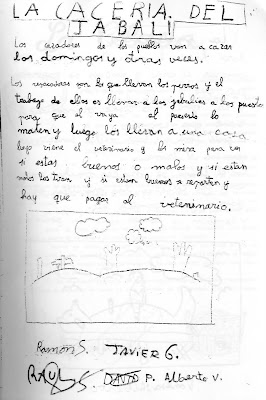 LA CACERIA DEL
JABALI
Los cazadores de los pueblos van a cazar
los domingos y otras veces.
Los resacadores son lo que llevan los perros y el
trabajo de ellos es llevar a los jabalíes a los puestos
para que el vaya al puesto lo
maten y luego los llevan a una casa
luego viene el veterinario y los mira para ver
si estas buenos o malos y si estan
malos los tiran y si estan buenos se reparten y
hay que pagar al veterinario.
Ramón S. JAVIER G.
RAUL S. DAVID P. Alberto V.